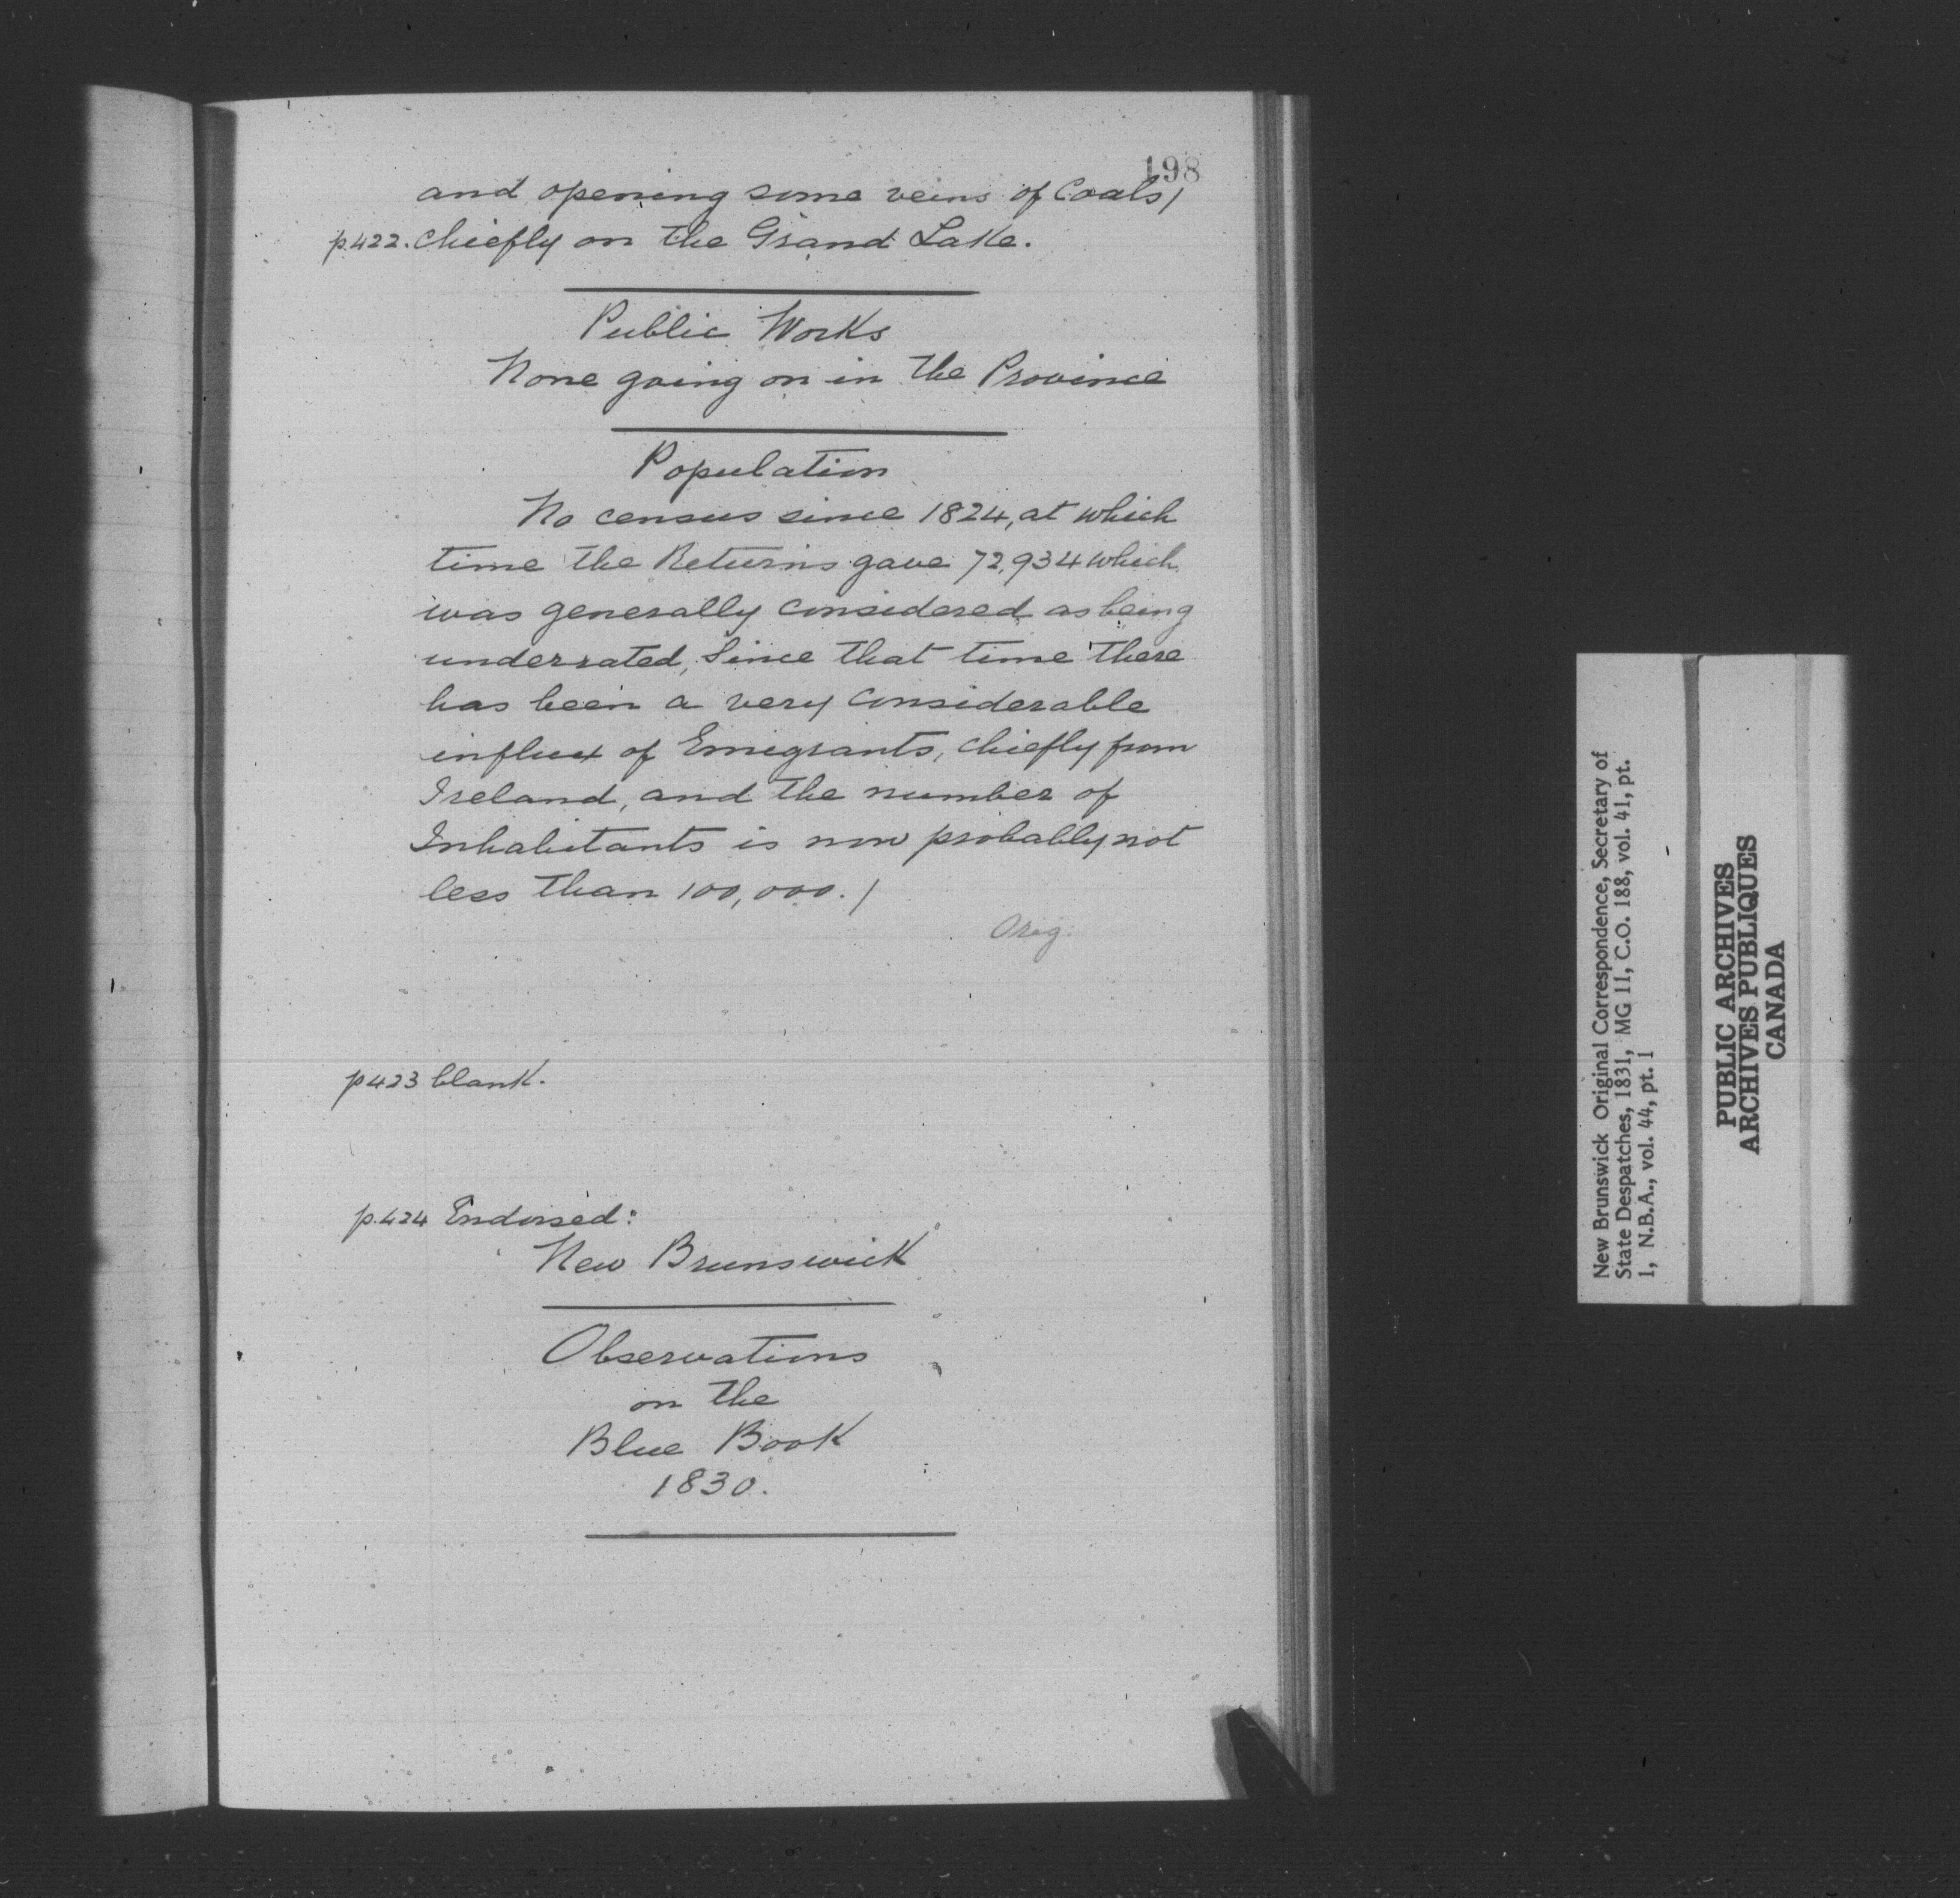 198
and opening some veins of Coals/
p.422. chiefly on the Grand Lake.
Public Works
None going on in the Province
Population
No census since 1824, at which
time the Returns gave 72,934 which
was generally considered as being
underrated, Since that time there
has been a very considerable
influx of Emigrants, chiefly from
Ireland, and the number of
Inhabitants is now probably not
less than 100,000./
Orig.
p423 blank.
p.424 Endorsed:
New Brunswick
Observations
on the
Blue Book
1830.
New Brunswick Original Correspondence, Secretary of
State Despatches, 1831, MG 11, C.O. 188, vol. 41, pt.
1, N.B.A., vol. 44, pt. 1
PUBLIC ARCHIVES
ARCHIVES PUBLIQUES
CANADA